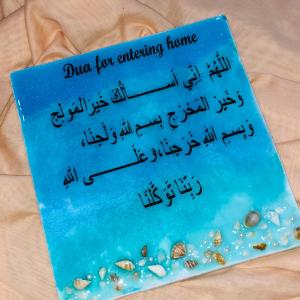 Dua for entering home
اللَّهُمَّ إِنِّي أَسْأَلُكَ خَيْرَ المَوْلِجِ
وَخَيْرَ المَخْرَجِ بِسمِ اللهِ وَلَجنَا،
وَبِسمِ اللهِ خَرَجنَا، وَعَلَى اللهِ
رَبِّنَا تَوَكَّلنَا